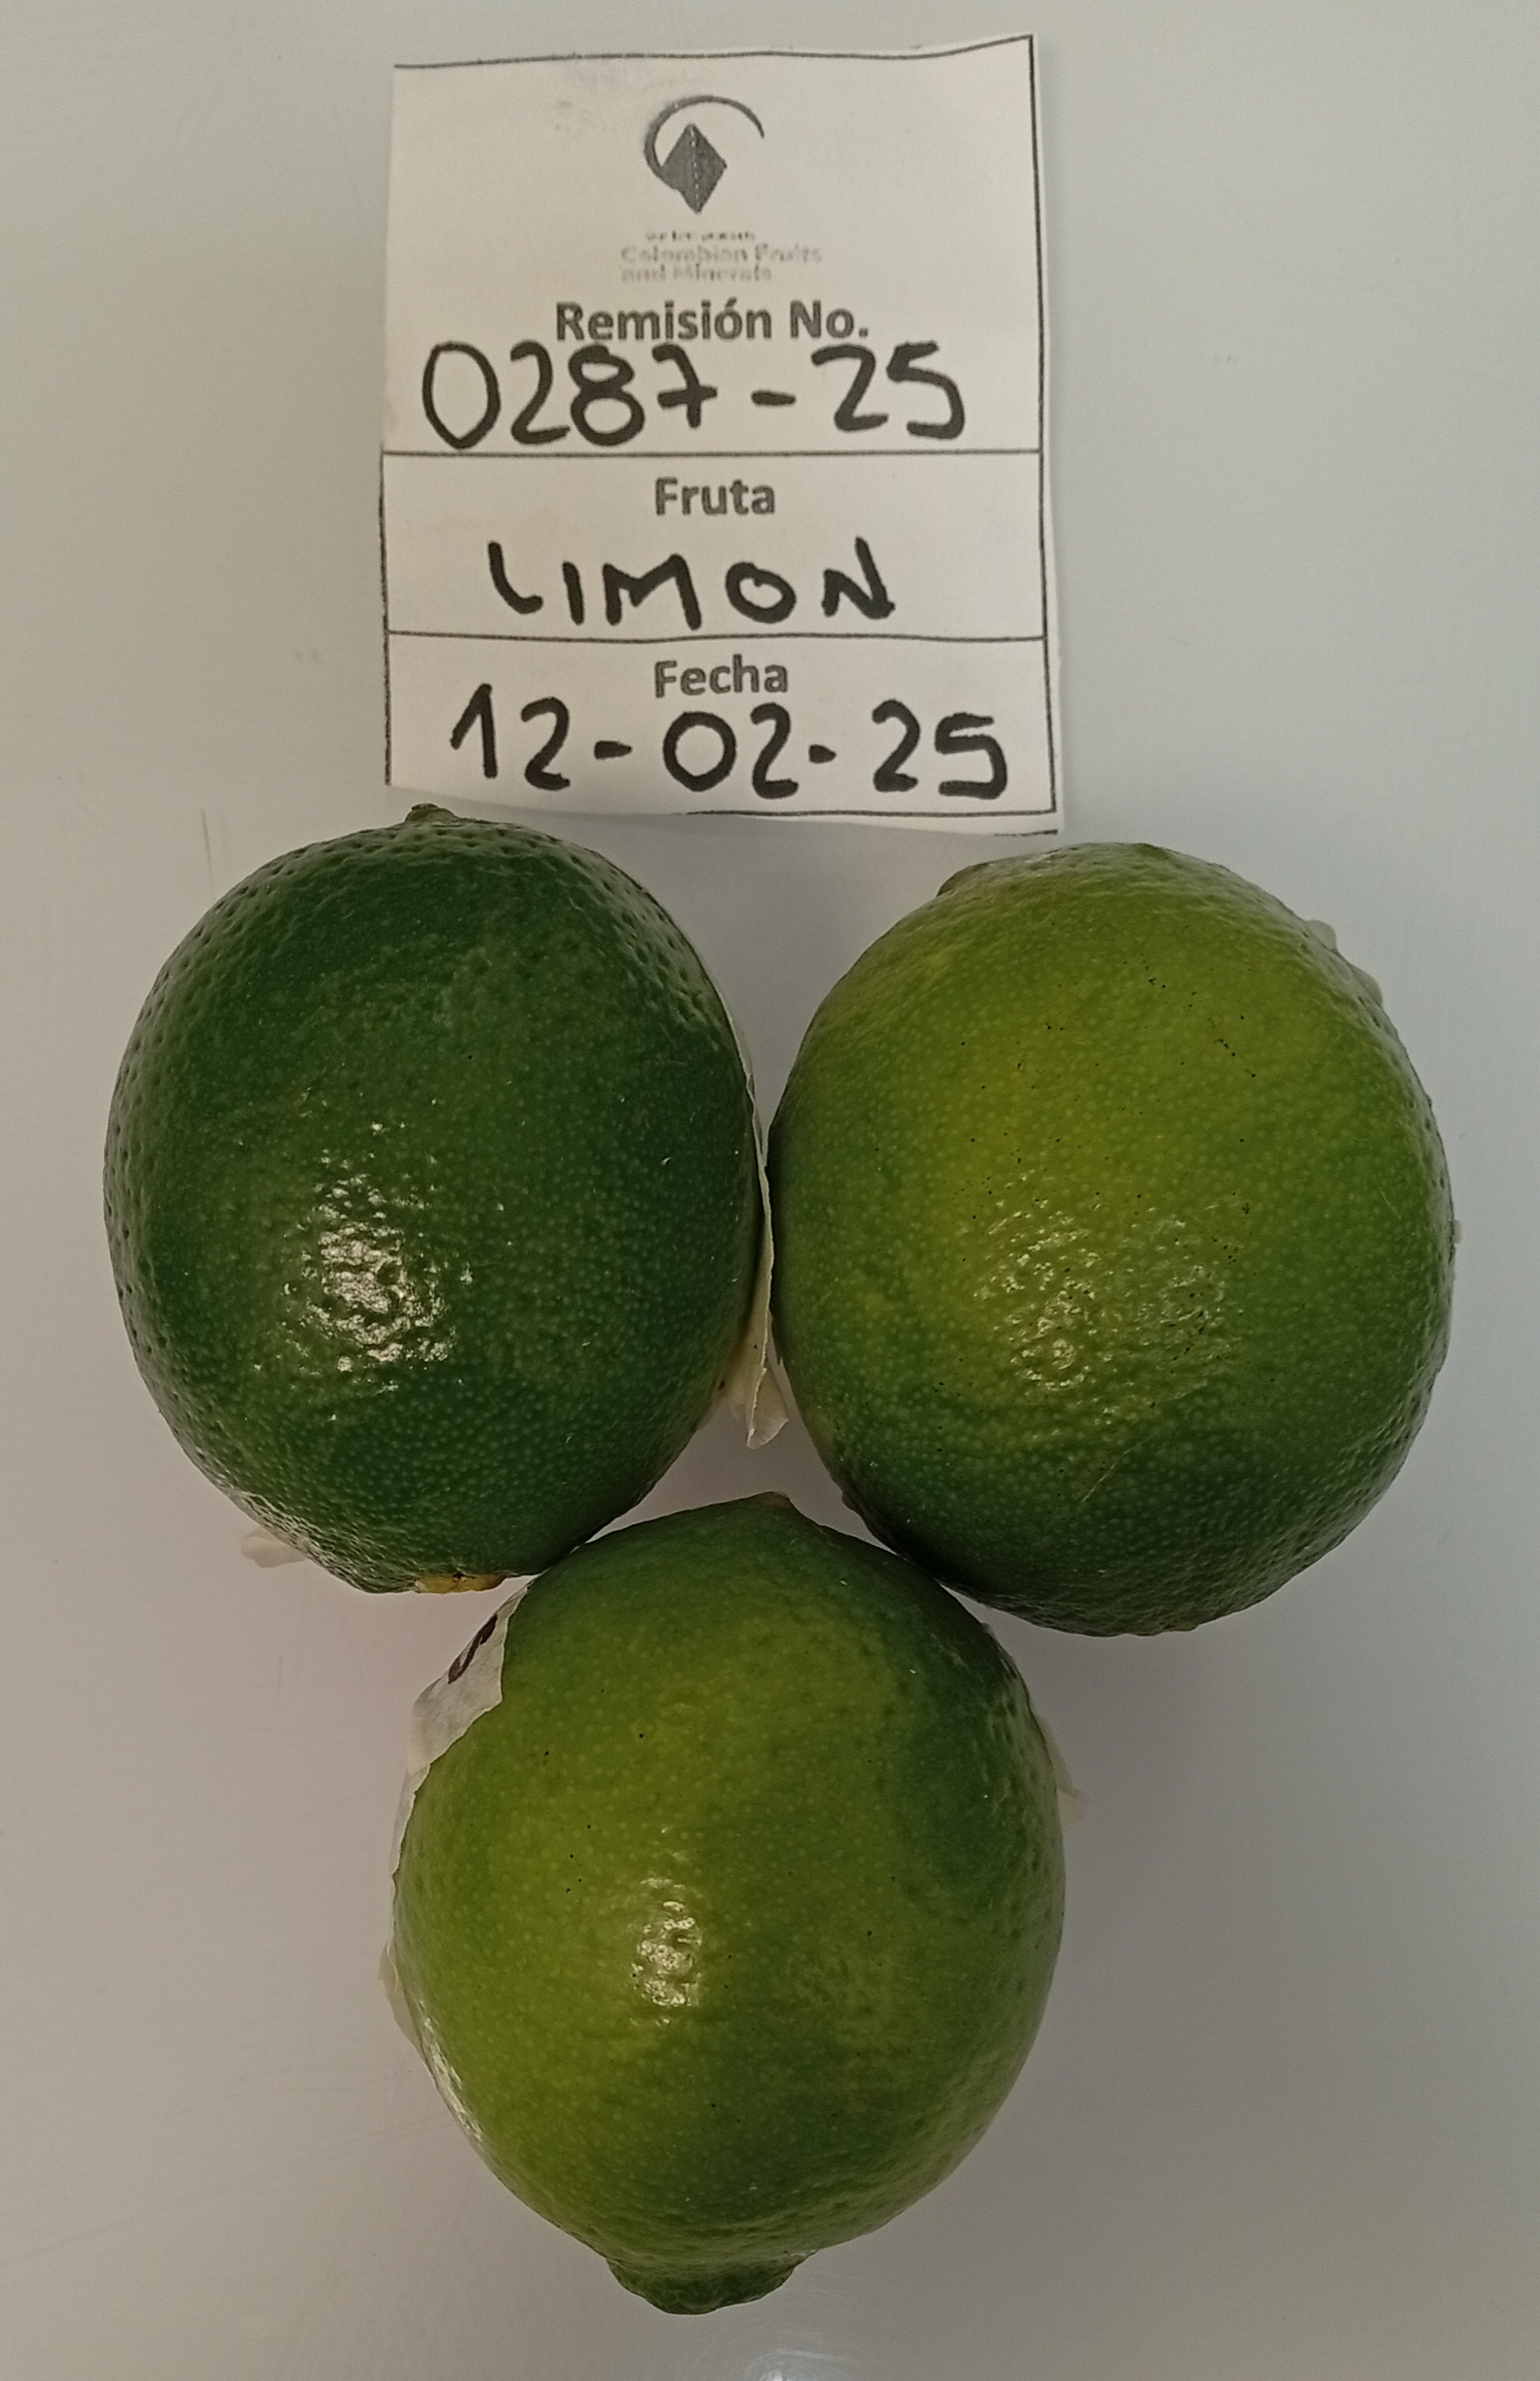 Colombian Fruits
and Minerals
Remisión No.
0287-25
Fruta
LIMON
Fecha
12-02-25
S